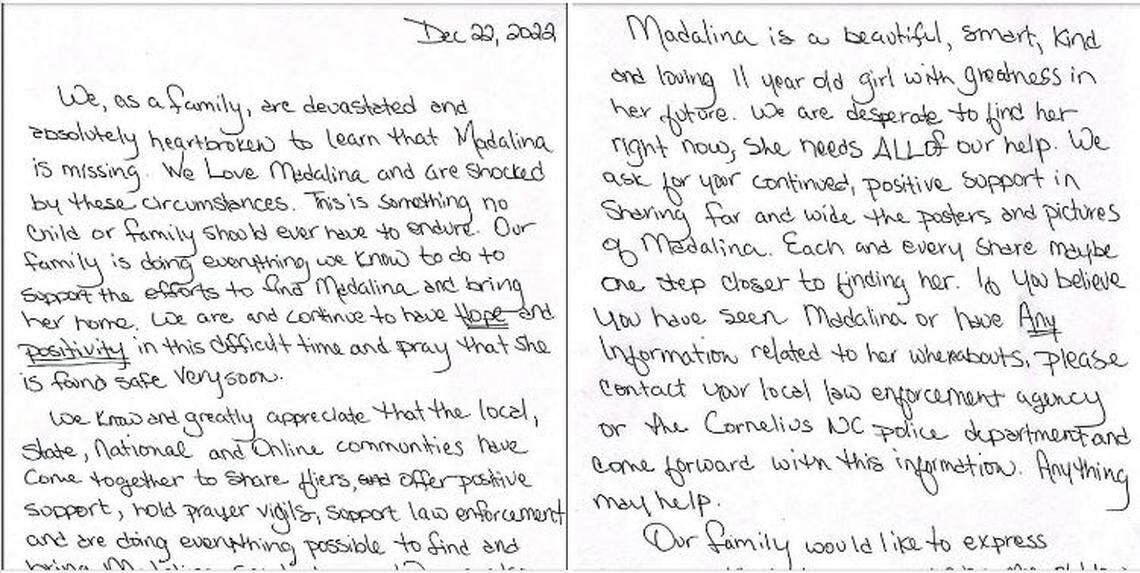 Dec 22, 2022
We, as a family, are devastated and
absolutely heartbroken to learn that Madalina
is missing. We Love Madalina and are shocked
by these circumstances. This is something no
child or family should ever have to endure. Our
family is doing everything we know to do to
support the efforts to find Madalina and bring
her home. We are and continue to have Hope and
positivity in this difficult time and pray that she
is found safe very soon.
We know and greatly appreciate that the local,
State, National and Online communities have
come together to share fliers, and offer positive
support, hold prayer vigils, support law enforcement
and are doing everything possible to find and
bring
Madalina is a beautiful, smart, kind
and loving 11 year old girl with greatness in
her future. We are desperate to find her
right now, she needs ALL of our help. We
ask for your continued, positive support in
sharing far and wide the posters and pictures
of Madalina. Each and every share maybe
one step closer to finding her. If you believe
you have seen Madalina or have Any
information related to her whereabouts, please
contact your local law enforcement agency
or the Cornelius NC police department and
come forward with this information. Anything
may help.
Our family would like to express